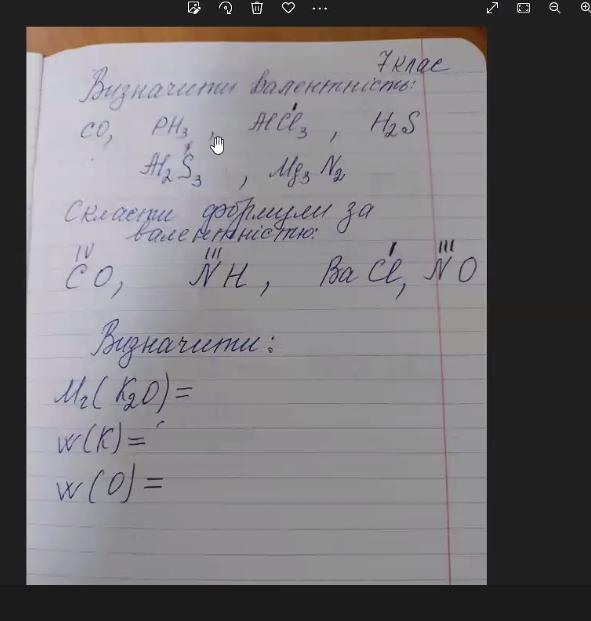 7 клас
Визначити валентність:
CO, PH₃, AlCl₃, H₂S
Al₂S₃, Mg₃N₂
Скласти формули за
валентністю:
IV III I III
CO, NH, BaCl, NO
Визначити:
Mr(K₂O)=
w(K)=
w(O)=